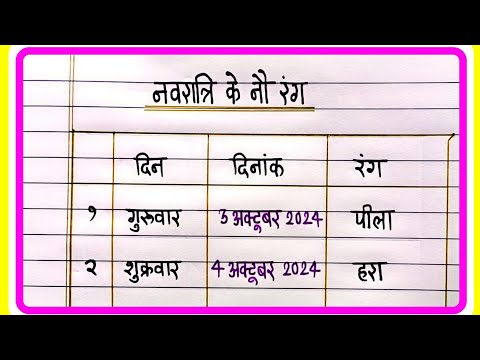 नवरात्रि के नौ रंग
दिन दिनांक रंग
१ गुरुवार 3 अक्टूबर 2024 पीला
२ शुक्रवार 4 अक्टूबर 2024 हरा